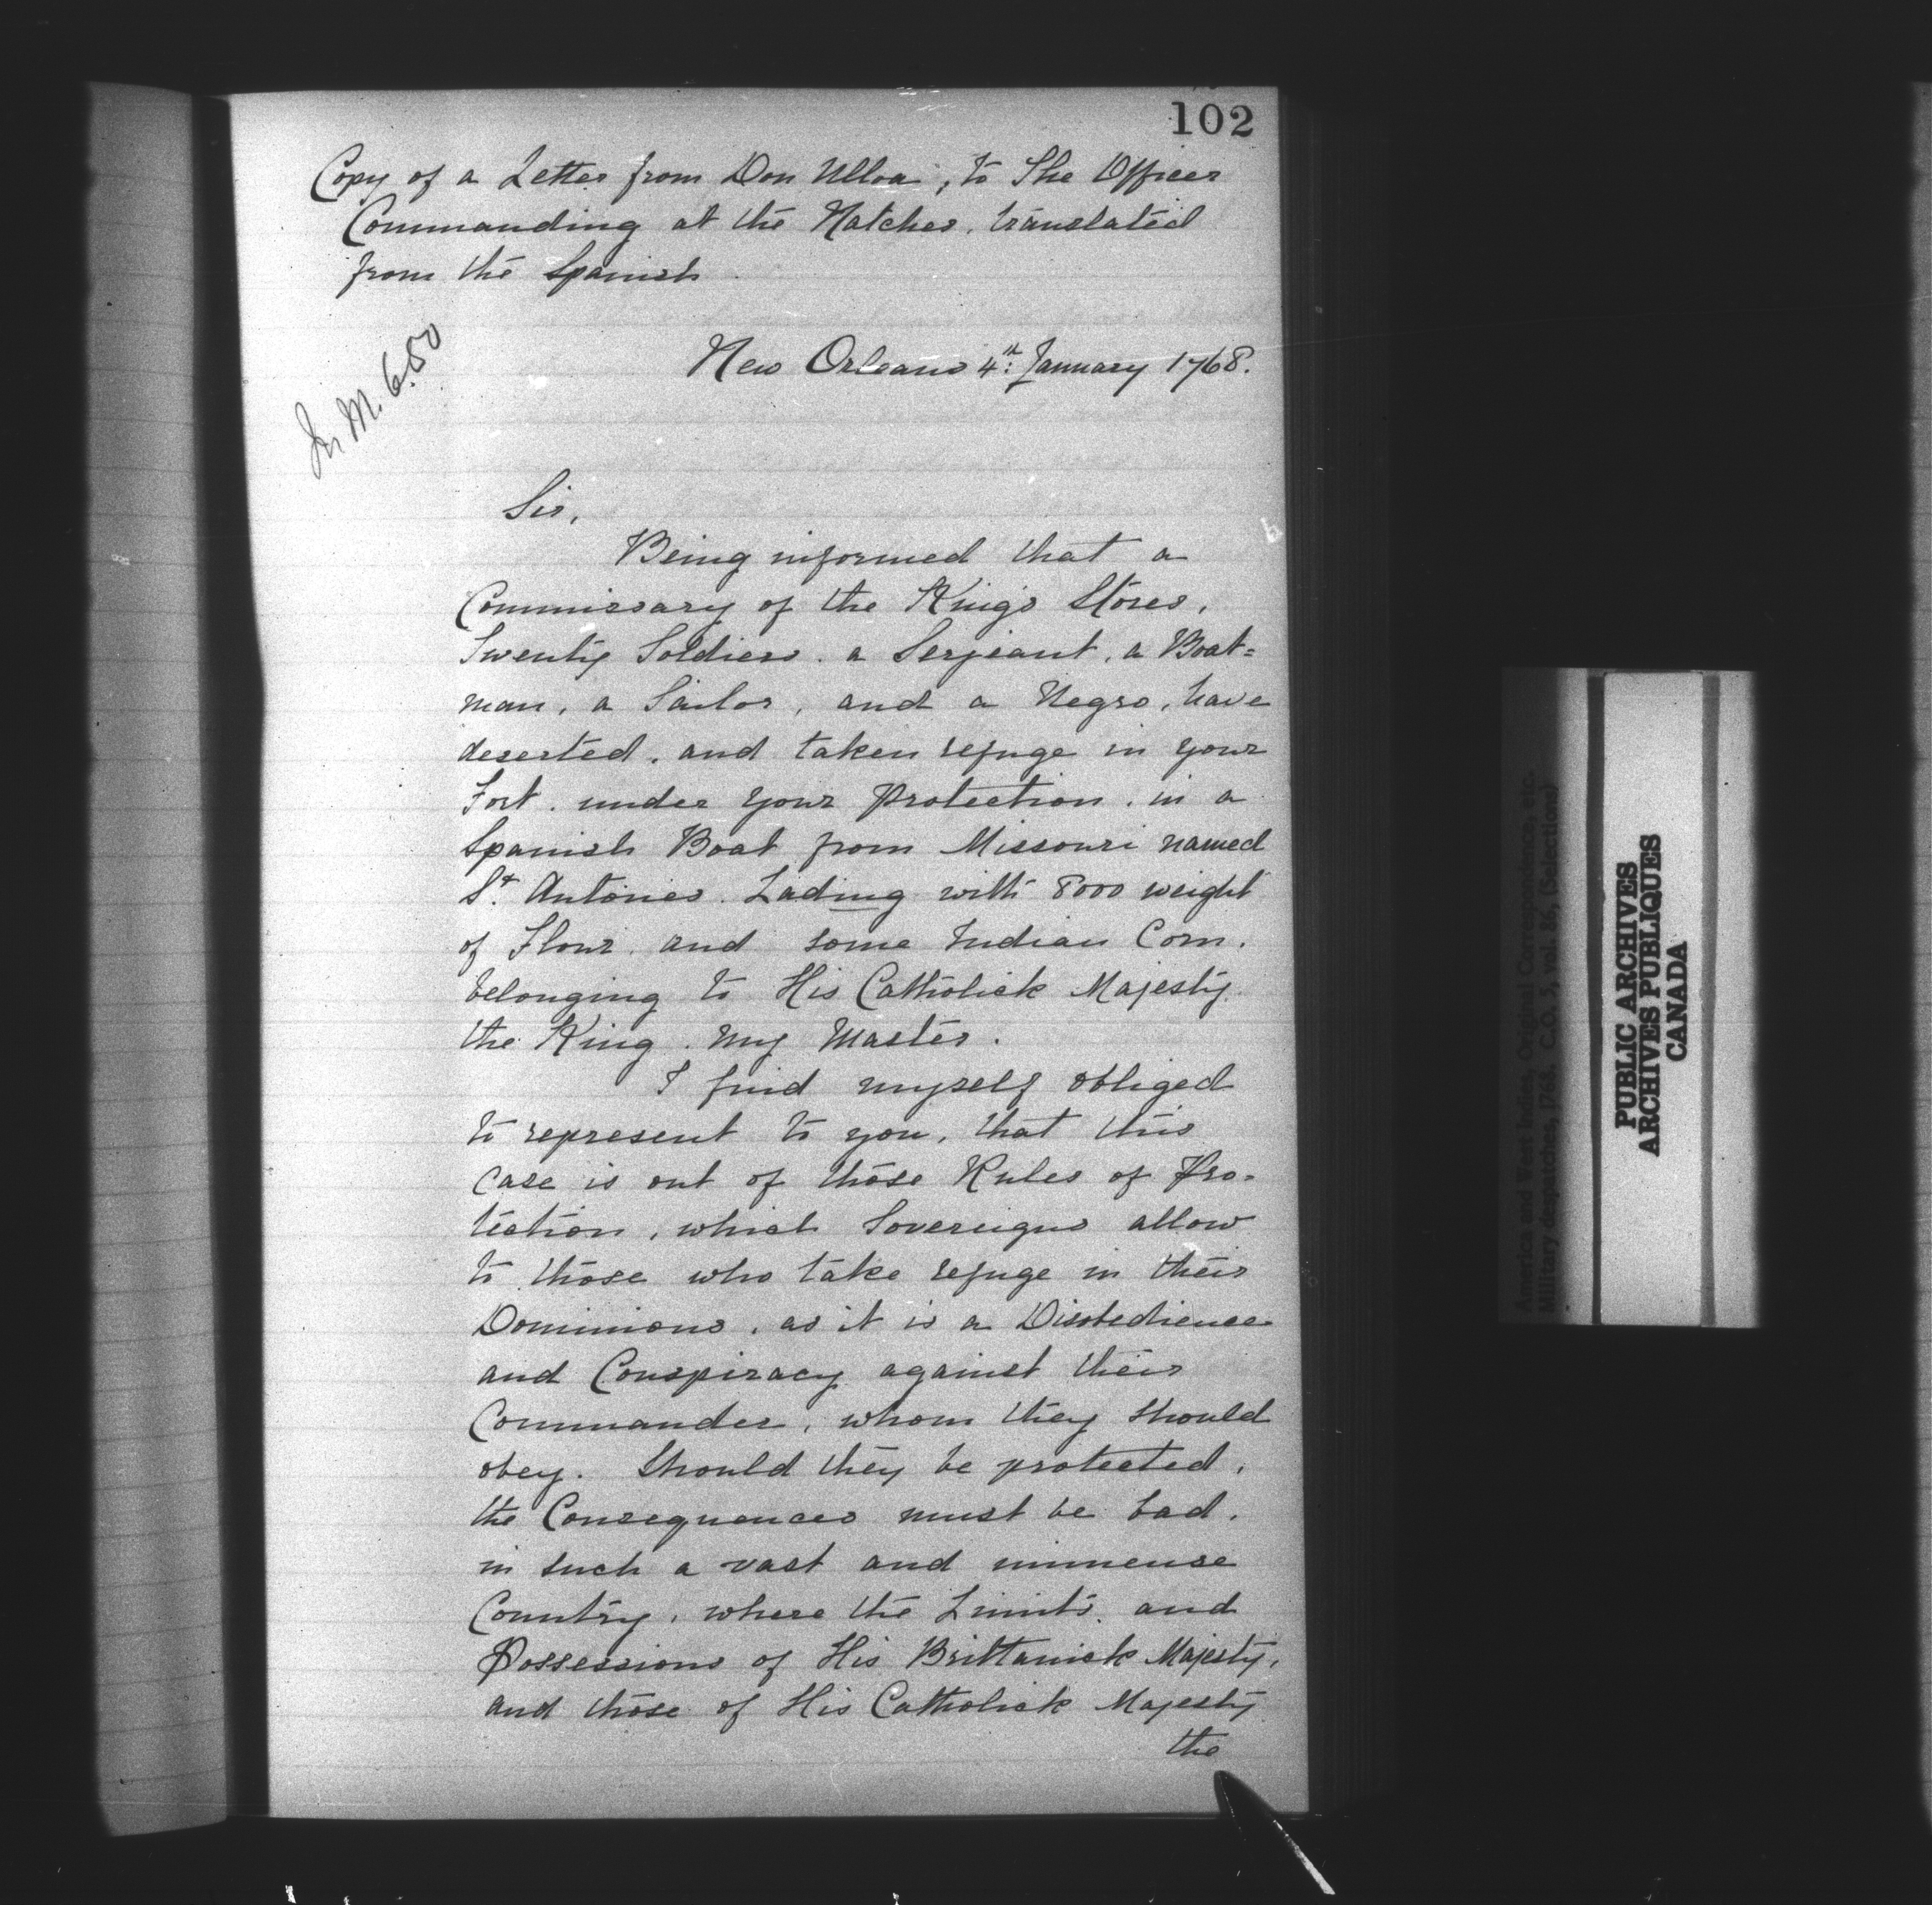 102
Copy of a Letter from Don Ulloa, to The Officer
Commanding at the Natches, translated
from the Spanish
New Orleans 4th: January 1768.
In M. 6.50
Sir,
Being informed that a
Commissary of the King's Stores,
Twenty Soldiers, a Serjeant, a Boat=
man, a Sailor, and a Negro, have
deserted, and taken refuge in your
Fort, under your Protection, in a
Spanish Boat from Missouri named
St. Antonies. Lading with 8000 weight
of Flour, and some Indian Corn,
belonging to His Catholick Majesty
the King, my Master.
I find myself obliged
to represent to you, that this
case is out of those Rules of Pro-
tection, which Sovereigns allow
to those who take refuge in their
Dominions, as it is a Disobedience
and Conspiracy against their
Commander, whom they should
obey. Should they be protected,
the Consequences must be bad,
in such a vast and immense
Country, where the Limits, and
Possessions of His Brittanick Majesty,
and those of His Catholick Majesty
the
America and West Indies, Original Correspondence, etc.
Military despatches, 1768. C.O. 5, vol. 86, (Selections)
PUBLIC ARCHIVES
ARCHIVES PUBLIQUES
CANADA